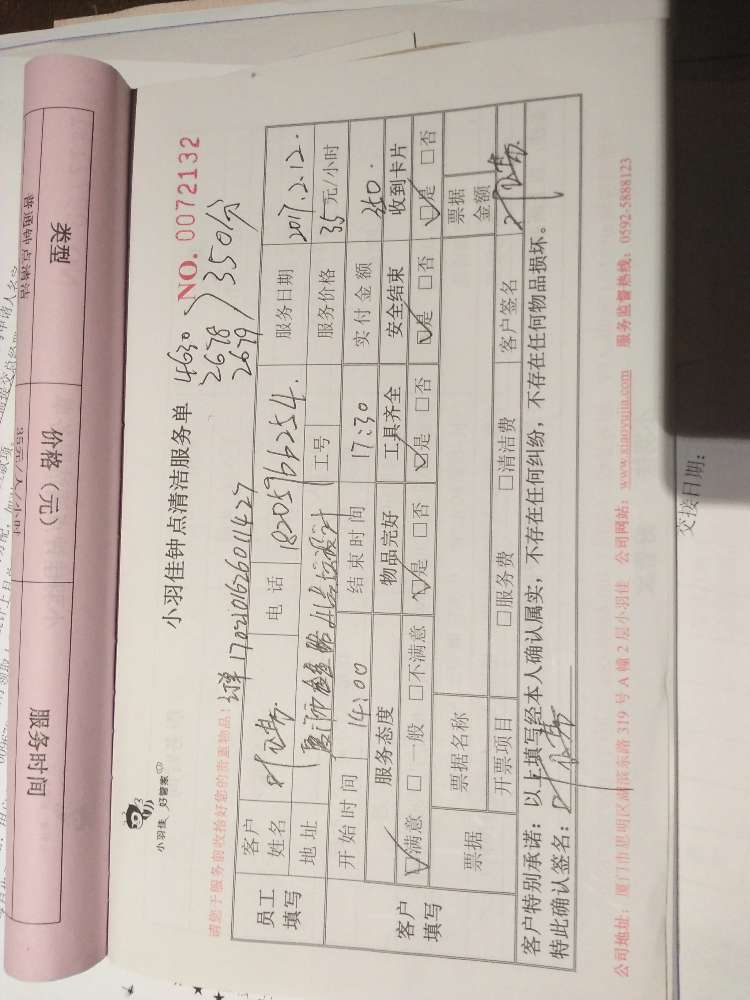 小羽佳 好管家
小羽佳钟点清洁服务单 NO. 0072132
4630
2678
2679
350分
请您于服务前收拾好您的贵重物品!
订单
员工填写 客户姓名 电话 18205966254. 服务日期 2017.2.12.
地址 工号 服务价格 35元/小时
客户填写 开始时间 14:00 结束时间 17:30 实付金额 350.
服务态度 物品完好 工具齐全 安全结束 收到卡片
☑满意 □一般 □不满意 ☑是 □否 ☑是 □否 ☑是 □否 ☑是 □否
票据 票据名称 票据金额
开票项目 □服务费 □清洁费 客户签名
客户特别承诺:以上填写经本人确认属实,不存在任何纠纷,不存在任何物品损坏。
特此确认签名:
公司地址:厦门市思明区湖滨东路 319 号 A 幢 2 层小羽佳 公司网站:www.xiaoyujia.com 服务监督热线:0592-5888123
类型 价格(元) 服务时间
普通钟点清洁 35元/人/小时
交接日期: